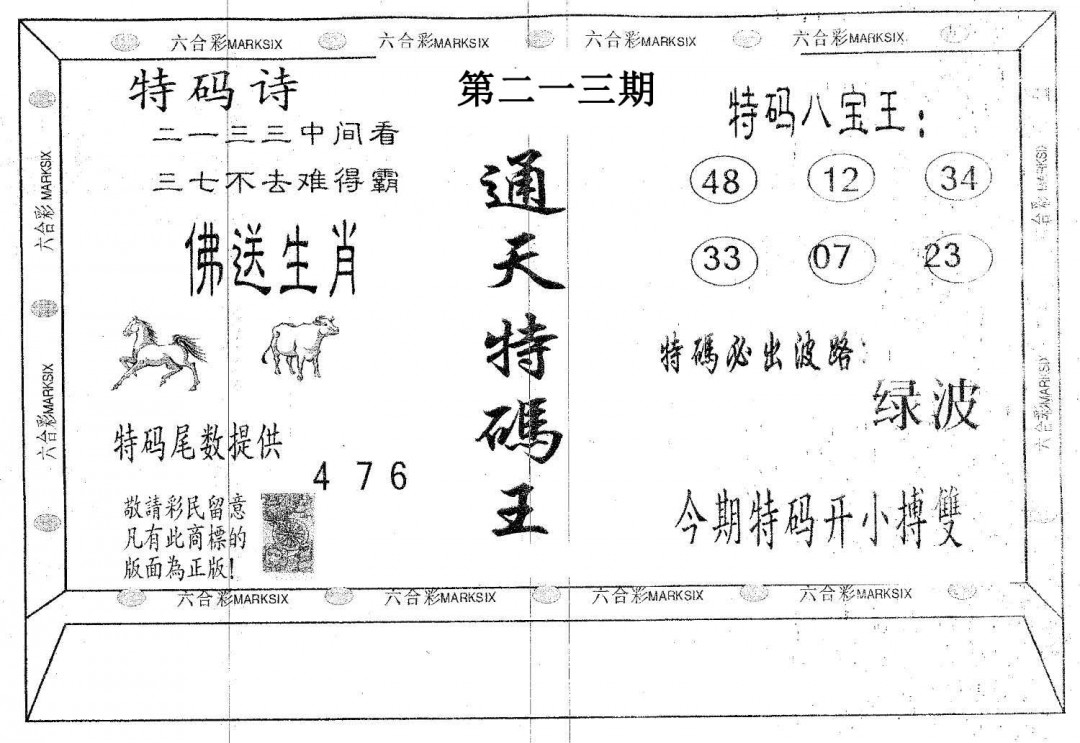 六合彩MARKSIX 六合彩MARKSIX 六合彩MARKSIX 六合彩MARKSIX
特码诗
二一三三中间看
三七不去难得霸
佛送生肖
特码尾数提供
4 7 6
敬請彩民留意
凡有此商標的
版面為正版!
第二一三期
通天特碼王
特码八宝王：
48 12 34
33 07 23
特碼必出波路：
绿波
今期特码开小搏雙
六合彩MARKSIX
六合彩MARKSIX
六合彩MARKSIX
六合彩MARKSIX
六合彩MARKSIX 六合彩MARKSIX 六合彩MARKSIX 六合彩MARKSIX